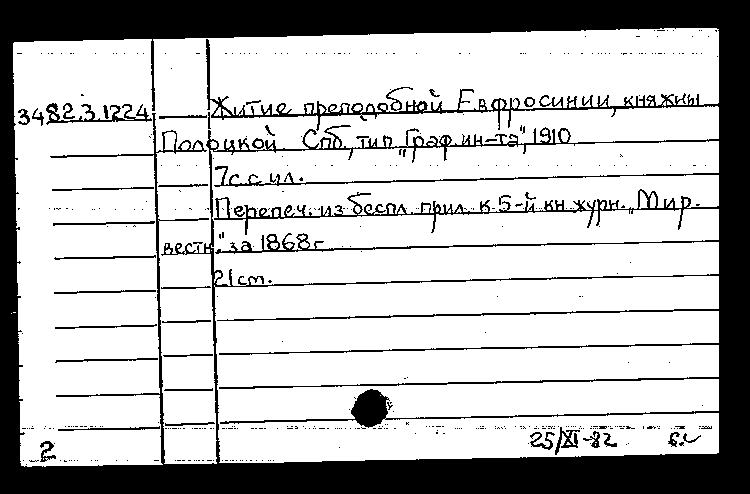 3482.3.1224 Житие преподобной Евфросинии, княжны
Полоцкой. Спб., тип. „Граф. ин-та", 1910
7с. с ил.
Перепеч. из беспл. прил. к 5-й кн. журн. „Мир.
вестн." за 1868г
21 см.
2 25/XI-82